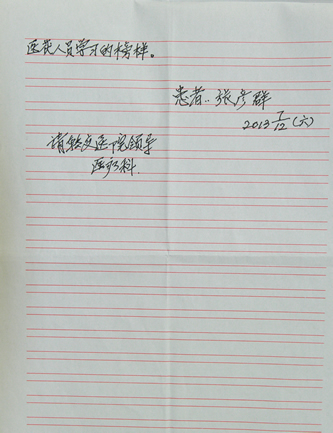 医务人员学习的榜样。
患者:张彦群
2013 7/12(六)
请转交医院领导
医务科.